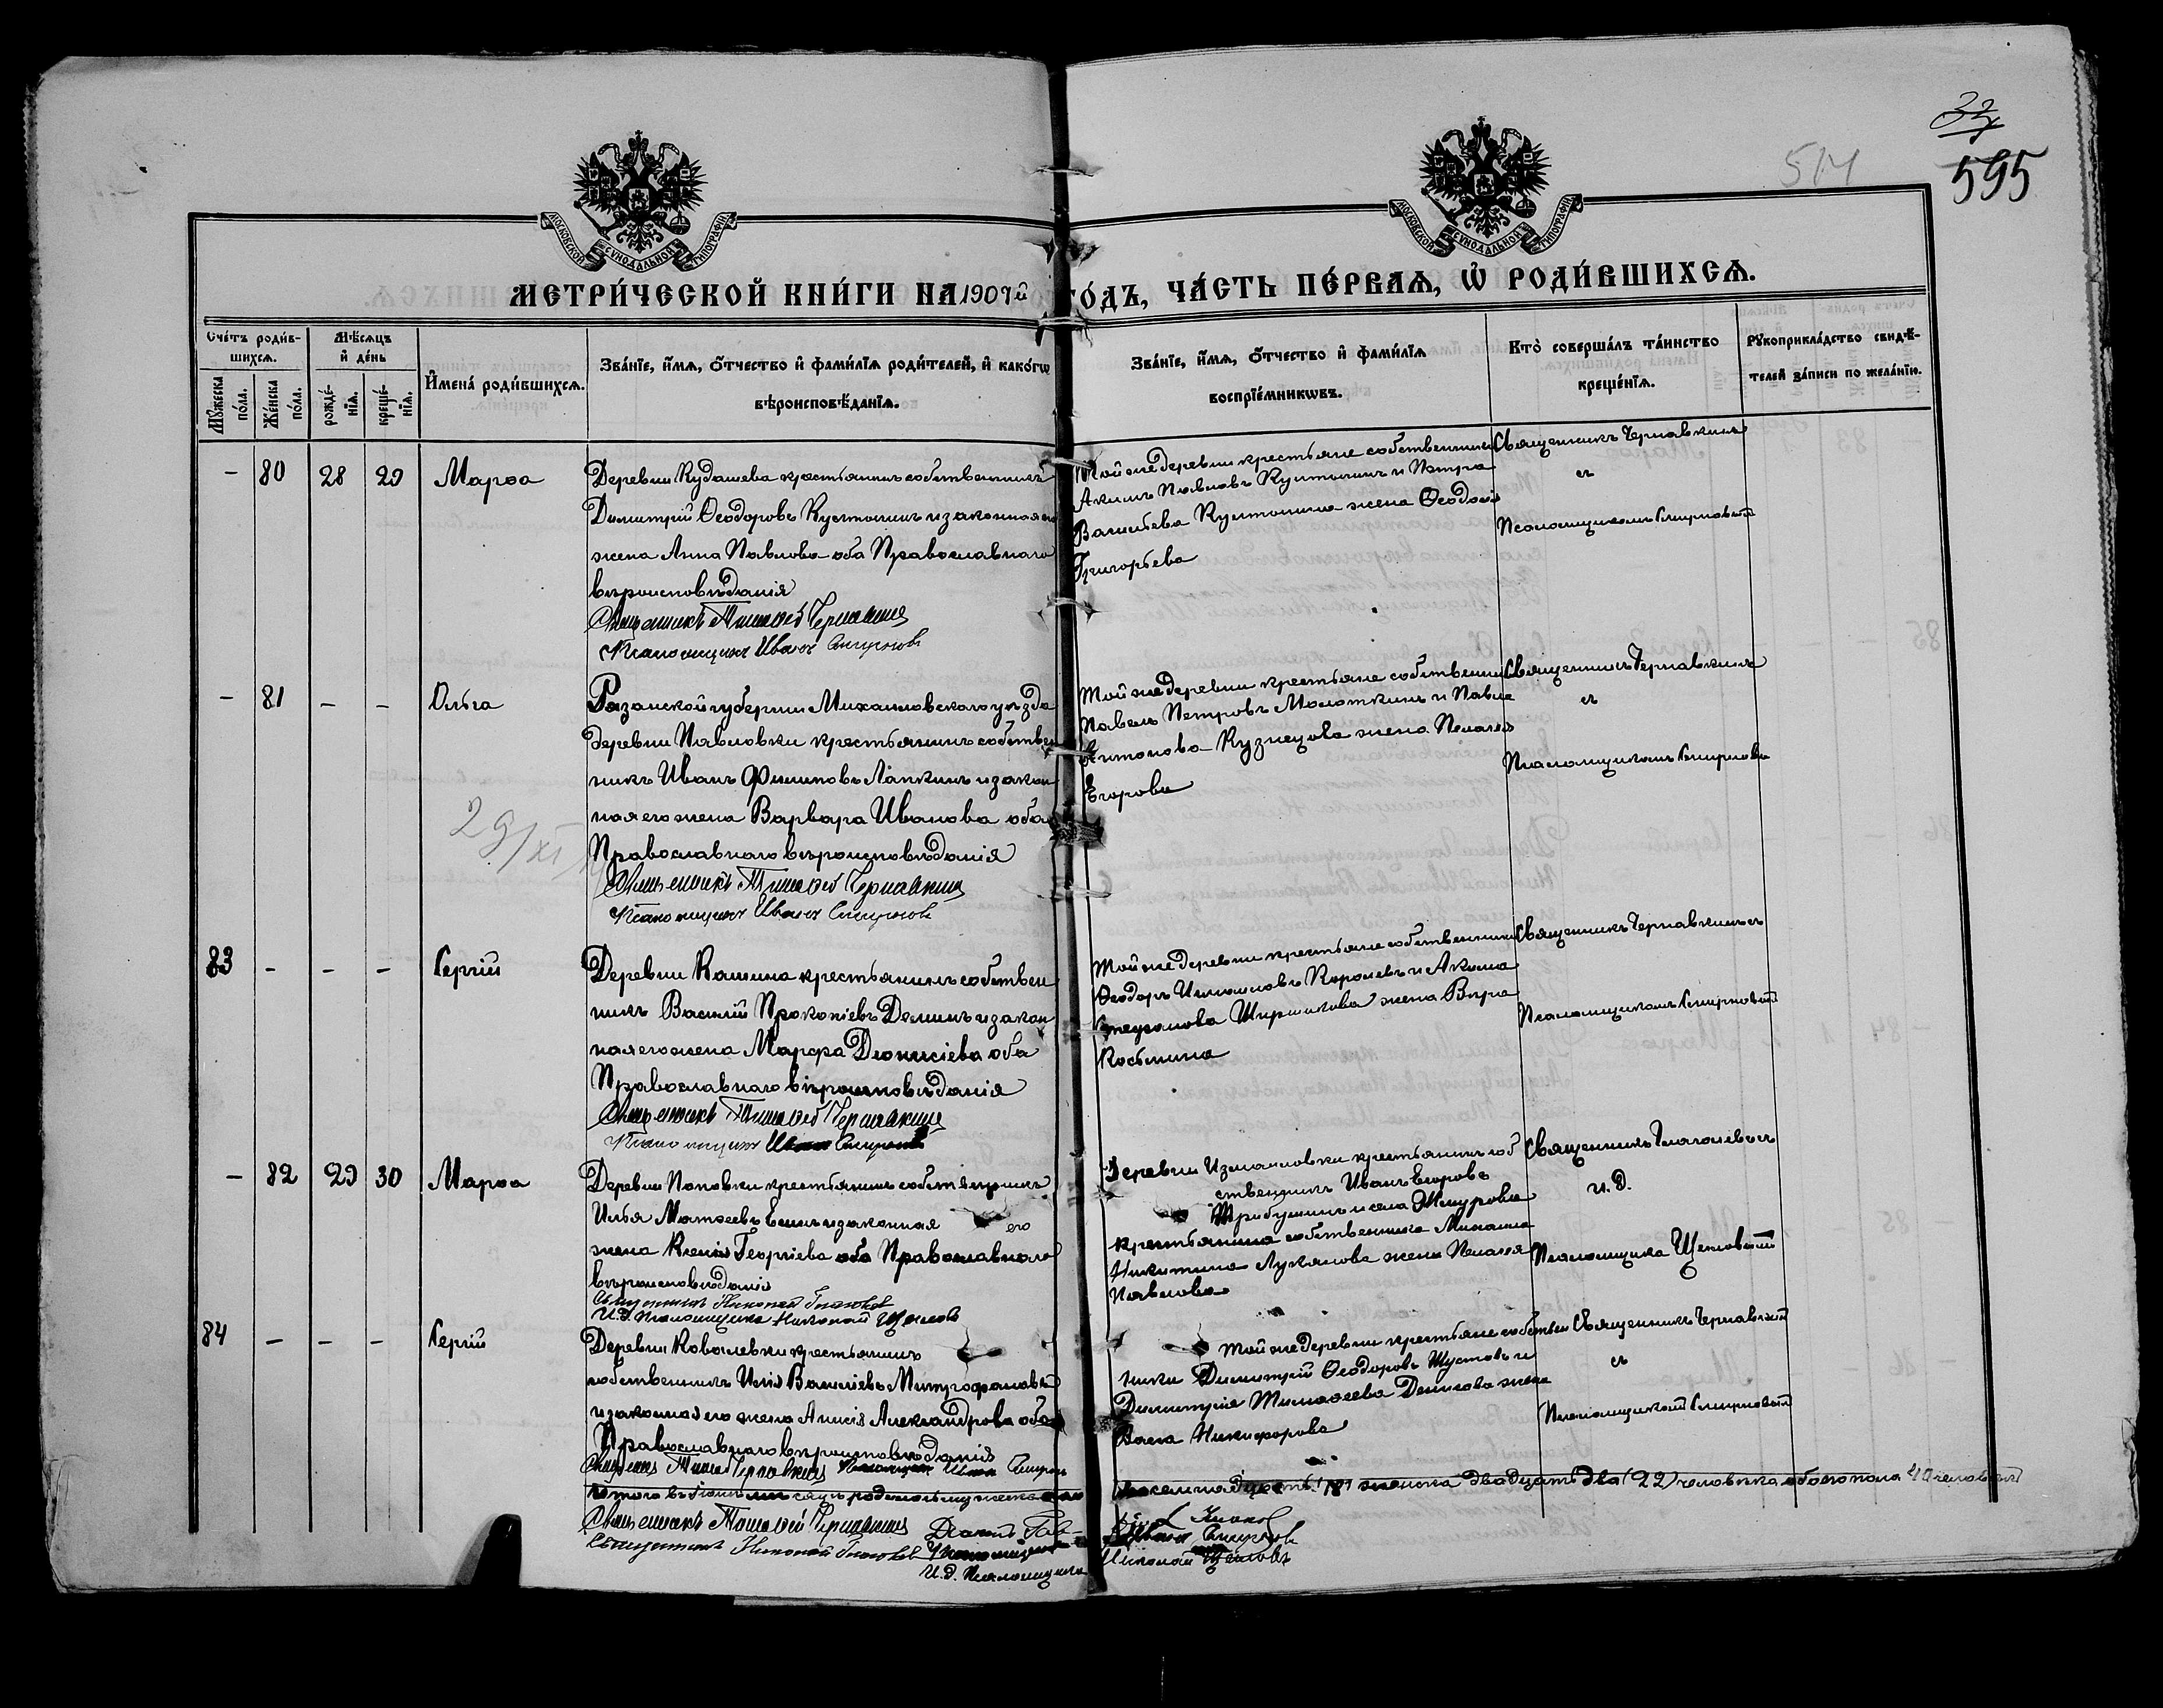 32
514
595
МОСКОВСКОЙ СѴНОДАЛЬНОЙ ТИПОГРАФІИ
МОСКОВСКОЙ СѴНОДАЛЬНОЙ ТИПОГРАФІИ
МЕТРИ́ЧЕСКОЙ КНИ́ГИ НА 1907й ГО́ДЪ, ЧА́СТЬ ПЕ́РВАѦ, Ѡ҆ РОДИ́ВШИХСѦ.
Сче́тъ роди́вшихсѧ.
Мѣ́сѧцъ и҆ де́нь
Мꙋ́жеска по́ла.
Же́нска по́ла.
рожде́нїѧ.
креще́нїѧ.
И҆мена̀ роди́вшихсѧ.
Зва́нїе, и҆́мѧ, ѻ҆́тчество и҆ фами́лїѧ роди́телей, и҆ како́гѡ вѣроисповѣ́данїѧ.
Зва́нїе, и҆́мѧ, ѻ҆́тчество и҆ фами́лїѧ воспрїе́мникѡвъ.
Кто̀ соверша́лъ та́инство креще́нїѧ.
Рꙋкоприкла́дство свидѣ́телей за́писи по жела́нїю.
- 80 28 29 Марѳа
Деревни Кудашева крестьянинъ собственникъ
Димитрій Ѳеодоровъ Кустынинъ и законная его
жена Анна Павлова оба Православнаго
вѣроисповѣданія
Священникъ Тимоѳей Чернавкинъ
Псаломщикъ Иванъ Смирновъ
Той же деревни крестьяне собственники
Акимъ Павловъ Кустынинъ и Петра
Васильева Кустынина жена Ѳеодосія
Григорьева
Священникъ Чернавкинъ
съ
Псаломщикомъ Смирновымъ
- 81 - - Ольга
Рязанской губерніи Михайловскаго уѣзда
деревни Павловки крестьянинъ собствен
никъ Иванъ Филиповъ Лапкинъ и закон
ная его жена Варвара Иванова оба
Православнаго вѣроисповѣданія
Священникъ Тимоѳей Чернавкинъ
Псаломщикъ Иванъ Смирновъ
29/XI
Той же деревни крестьяне собственники
Павелъ Петровъ Молоткинъ и Павла
Антонова Кузнецова жена Пелагея
Егорова
Священникъ Чернавкинъ
съ
Псаломщикомъ Смирновы
83 - - - Сергій
Деревни Кашина крестьянинъ собствен
никъ Василій Прокопіевъ Деминъ и закон
ная его жена Марфа Діонисіева оба
Православнаго вѣроисповѣданія
Священникъ Тимоѳей Чернавкинъ
Псаломщикъ Иванъ Смирновъ
Той же деревни крестьяне собственники
Ѳеодоръ Королевъ и Акима
жена Вѣра
Косьмина
Священникъ Чернавкинъ съ
Псаломщикомъ Смирновымъ
- 82 29 30 Марѳа
Деревни Поповки крестьянинъ собственникъ
Илья Матѳеевъ и законная его
жена Ксенія Георгіева оба Православнаго
вѣроисповѣданія
Священникъ Николай
И.д. Псаломщика Николай Щегловъ
Деревни Измайловки крестьянинъ соб
ственникъ Иванъ Егоровъ
Трибунинъ и села
крестьянина собственника Михаила
Никитина Луканова жена Пелагея
Павлова
Священникъ съ
и.д.
Псаломщика Щегловымъ
84 - - - Сергій
Деревни Ковалевки крестьянинъ
собственникъ Илія Василіевъ Митрофановъ
и законная его жена Анисія Александрова оба
Православнаго вѣроисповѣданія
Священникъ Тимоѳей Чернавкинъ Псаломщикъ Иванъ Смирновъ
Той же деревни крестьяне собствен
ники Димитрій Ѳеодоровъ Шустовъ и
Димитрія Тимоѳеева Денисова жена
Васса Никифорова
Священникъ Чернавкинъ
съ
Псаломщикомъ Смирновымъ
восемнадцать (18) женска двадцать два (22) человѣка обоего пола 40 человѣкъ
Священникъ Тимоѳей Чернавкинъ
Священникъ Николай
Діаконъ Гав-
Псаломщикъ Иванъ Смирновъ
И.д. Псаломщика Николай Щегловъ